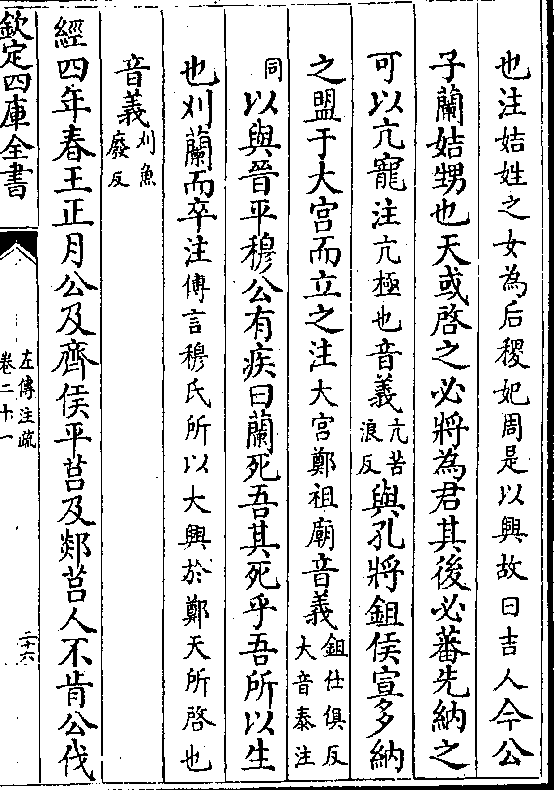 也注姞姓之女為后稷妃周是以興故曰吉人今公
子蘭姞甥也天或啓之必將為君其後必蕃先納之
可以亢寵注亢極也音義亢苦浪反與孔將鉏侯宣多納
之盟于大宫而立之注大宫鄭祖廟音義鉏仕俱反大音泰注
同以與晉平穆公有疾曰蘭死吾其死乎吾所以生
也刈蘭而卒注傳言穆氏所以大興於鄭天所啓也
音義刈魚廢反
經四年春王正月公及齊侯平莒及郯莒人不肯公伐
欽定四庫全書
左傳注疏
卷二十一
二十六